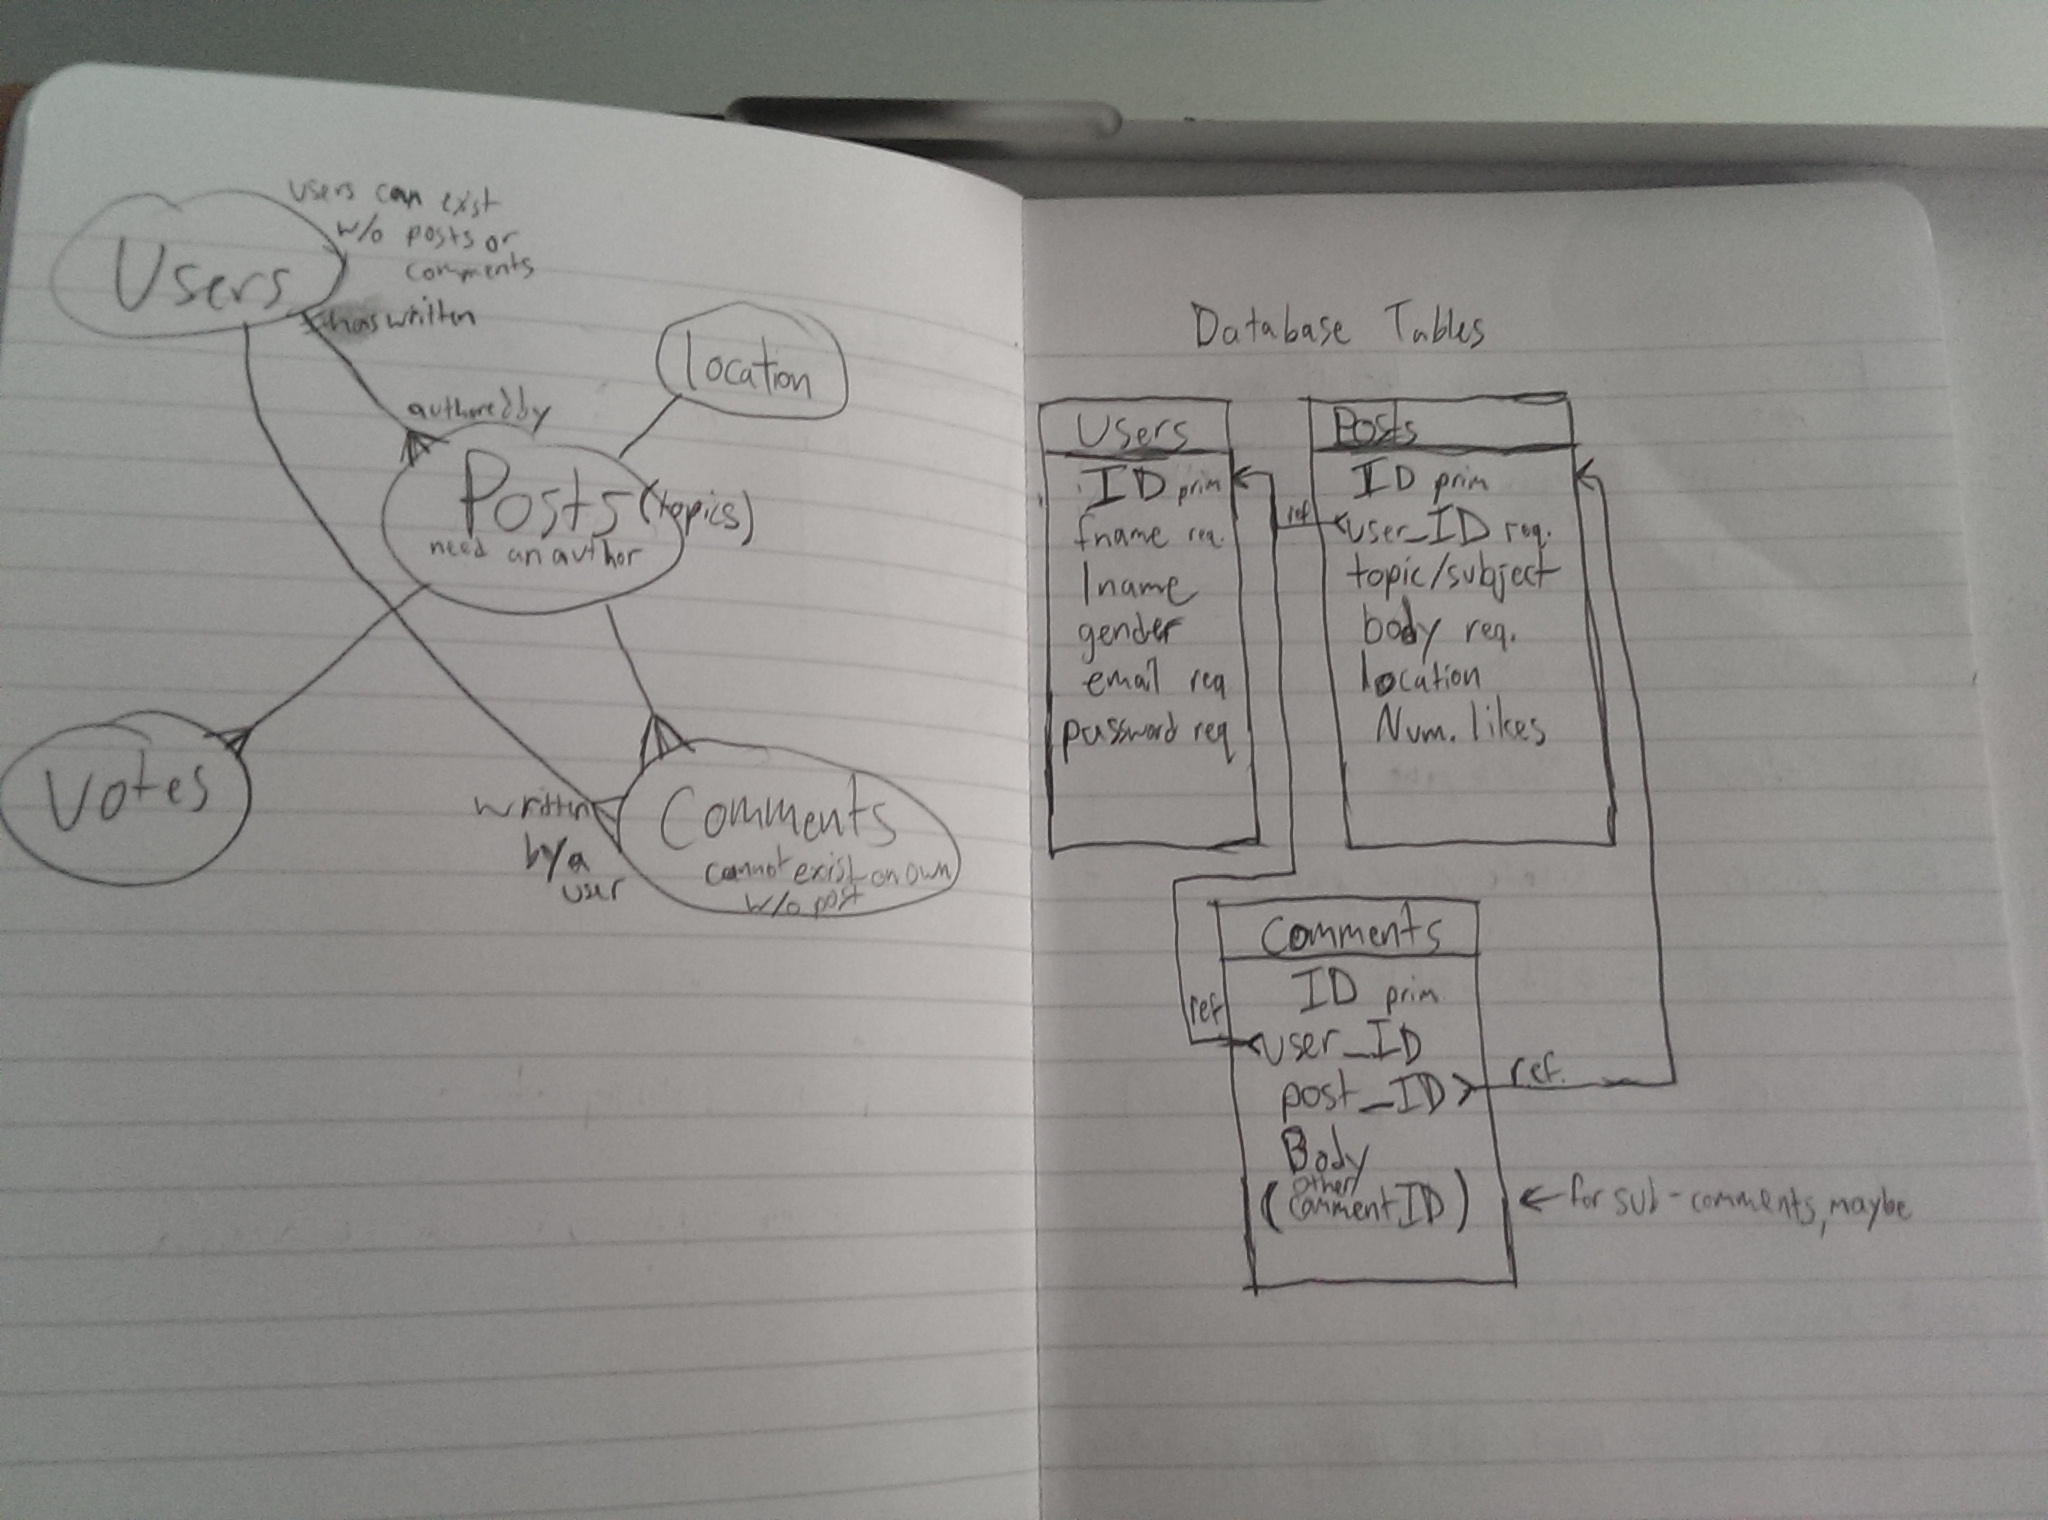 Users
users can exist
w/o posts or
comments
has written
location
authored by
Posts (topics)
need an author
Votes
written
by a
user
Comments
cannot exist on own
w/o post
Database Tables
Users
ID prim
fname req.
lname
gender
email req
password req
Posts
ID prim
ref
user_ID req.
topic/subject
body req.
location
Num. likes
Comments
ID prim
ref
user_ID
post_ID
ref.
Body
other
(comment_ID)
← for sub-comments, maybe